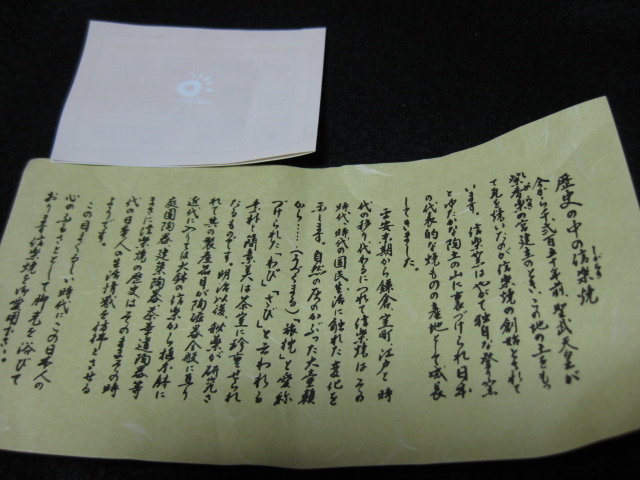 歴史の中の信楽焼
しがらき
今から千弐百五十年前、聖武天皇が
紫香楽の宮建立のとき、この地の土をもっ
て瓦を焼いたのが信楽焼の創始とされて
います。信楽窯はやがて独自な登り窯
とゆたかな陶土の山に裏づけられ日本
の代表的な焼ものの産地として成長
してきました。
平安末期から鎌倉、室町、江戸と時
代の移り代わるにつれて信楽焼はその
時代、時代の国民生活に触れた変化を
示します。自然の灰のかぶった大壷類
から……(うずくまる)「旅枕」と愛称
づけられた「わび」「さび」と云われる
素朴と簡素の美は茶室に珍重せられ
なるものです。明治以後、釉薬が研究さ
れて其の製産品目が陶磁器全般に亘り
近代に入っては火鉢の信楽から植木鉢に
庭園陶器、建築陶器、茶華道陶器等
まさに信楽焼の歴史はそのままその時
代の日本人の生活情感を彷彿とさせる
ようです。
この目まぐるしい時代に、この日本人の
心のふるさととして脚光を浴びて
おります信楽焼を御愛用下さい。